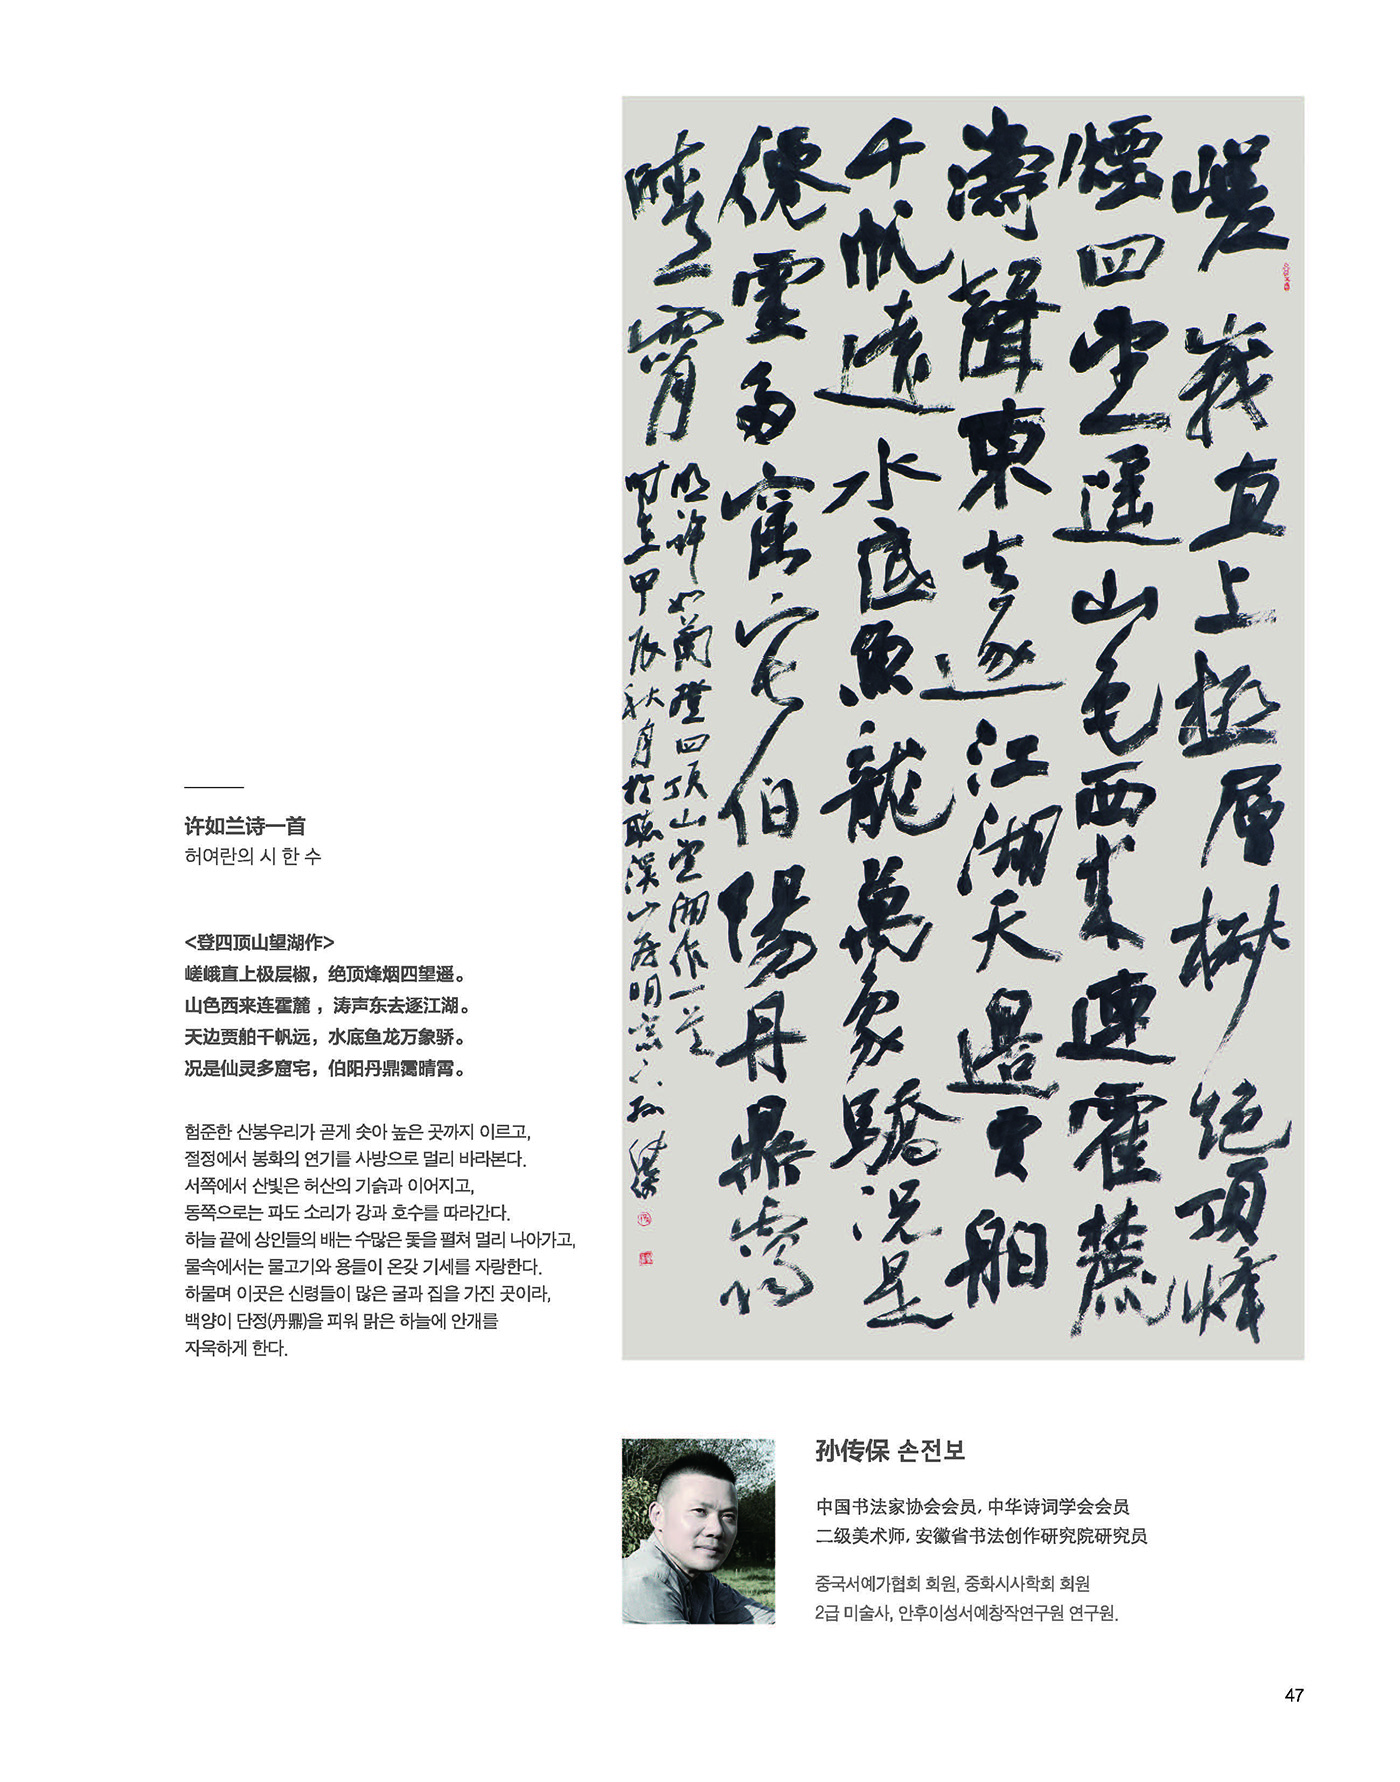 许如兰诗一首
허여란의 시 한 수
<登四顶山望湖作>
嵯峨直上极层椒，绝顶烽烟四望遥。
山色西来连霍麓，涛声东去逐江湖。
天边贾舶千帆远，水底鱼龙万象骄。
况是仙灵多窟宅，伯阳丹鼎霭晴霄。
험준한 산봉우리가 곧게 솟아 높은 곳까지 이르고,
절정에서 봉화의 연기를 사방으로 멀리 바라본다.
서쪽에서 산빛은 허산의 기슭과 이어지고,
동쪽으로는 파도 소리가 강과 호수를 따라간다.
하늘 끝에 상인들의 배는 수많은 돛을 펼쳐 멀리 나아가고,
물속에서는 물고기와 용들이 온갖 기세를 자랑한다.
하물며 이곳은 신령들이 많은 굴과 집을 가진 곳이라,
백양이 단정(丹鼎)을 피워 맑은 하늘에 안개를
자욱하게 한다.
嵯峨直上極層椒絕頂烽
煙四望遥山色西来連霍麓
濤聲東去逐江湖天邊賈舶
千帆遠水底魚龍萬象驕況是
僊靈多窟宅伯陽丹鼎靄
晴霄
明許如蘭登四顶山望湖作一首
时在甲辰秋月於聴溪山房明窗下孙传保
孙传保 손전보
中国书法家协会会员, 中华诗词学会会员
二级美术师, 安徽省书法创作研究院研究员
중국서예가협회 회원, 중화시사학회 회원
2급 미술사, 안후이성서예창작연구원 연구원.
47